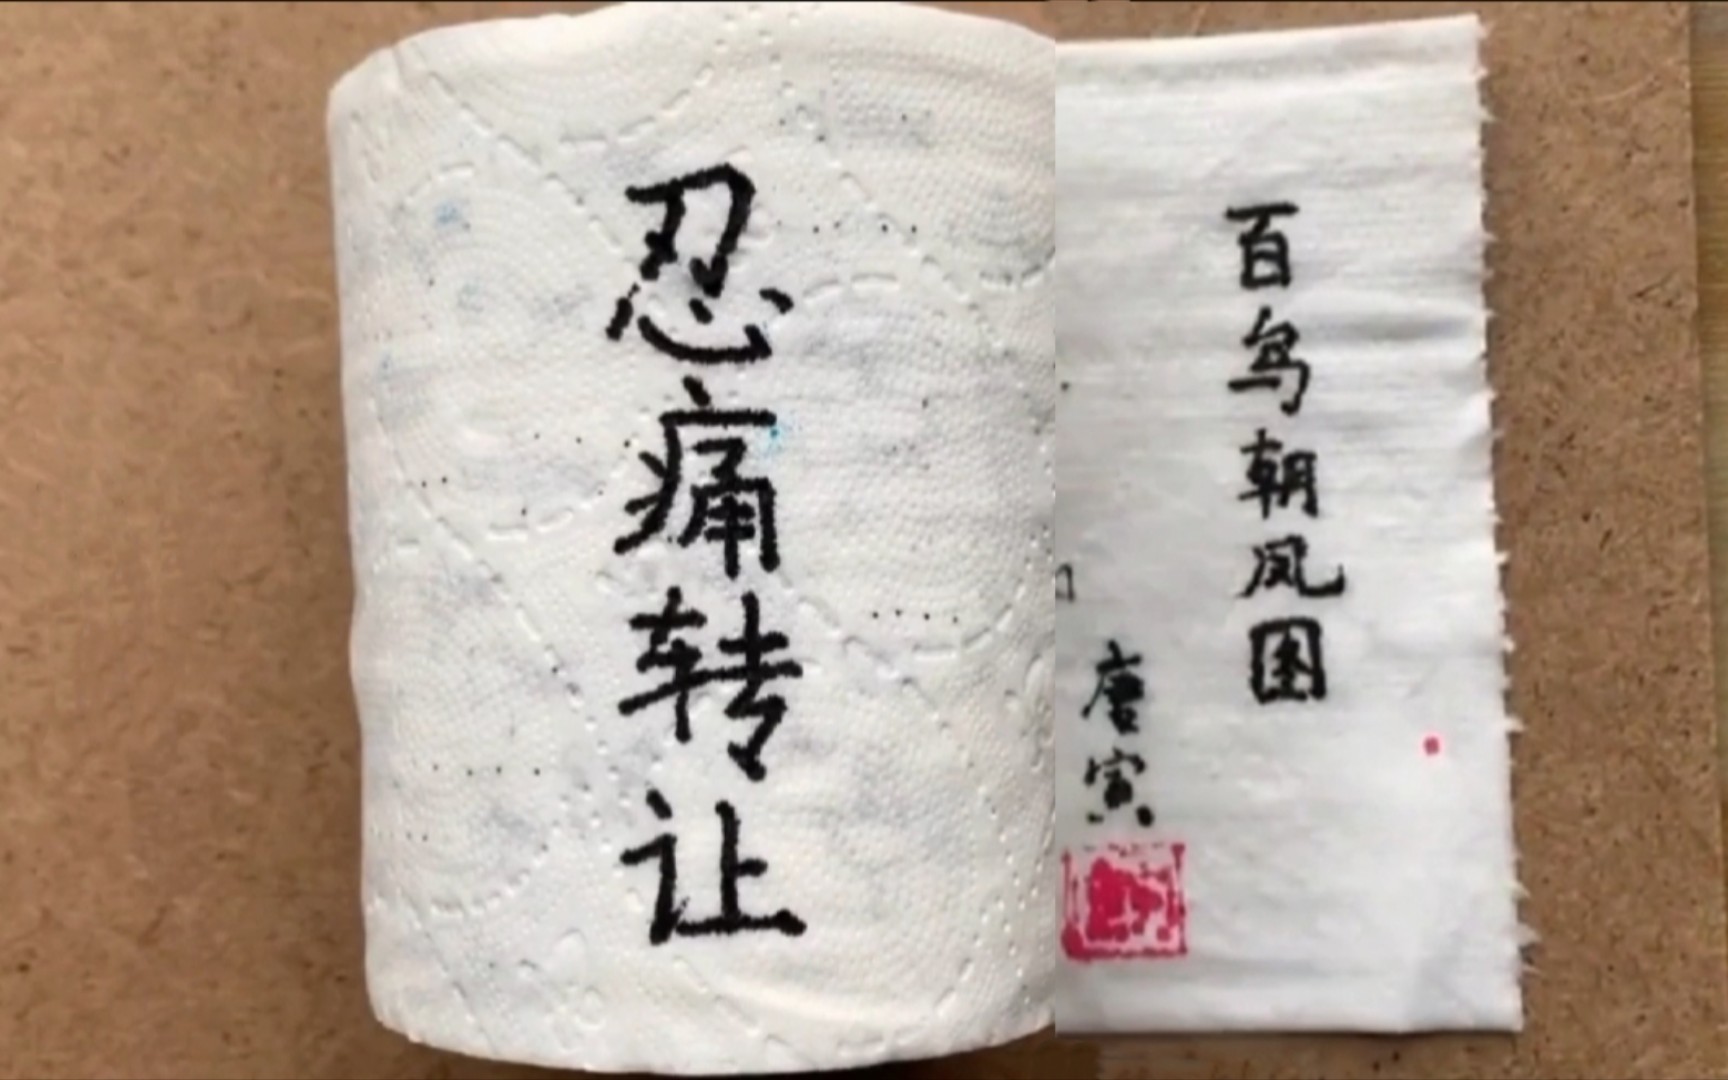 忍痛转让
百鸟朝凤图
唐寅